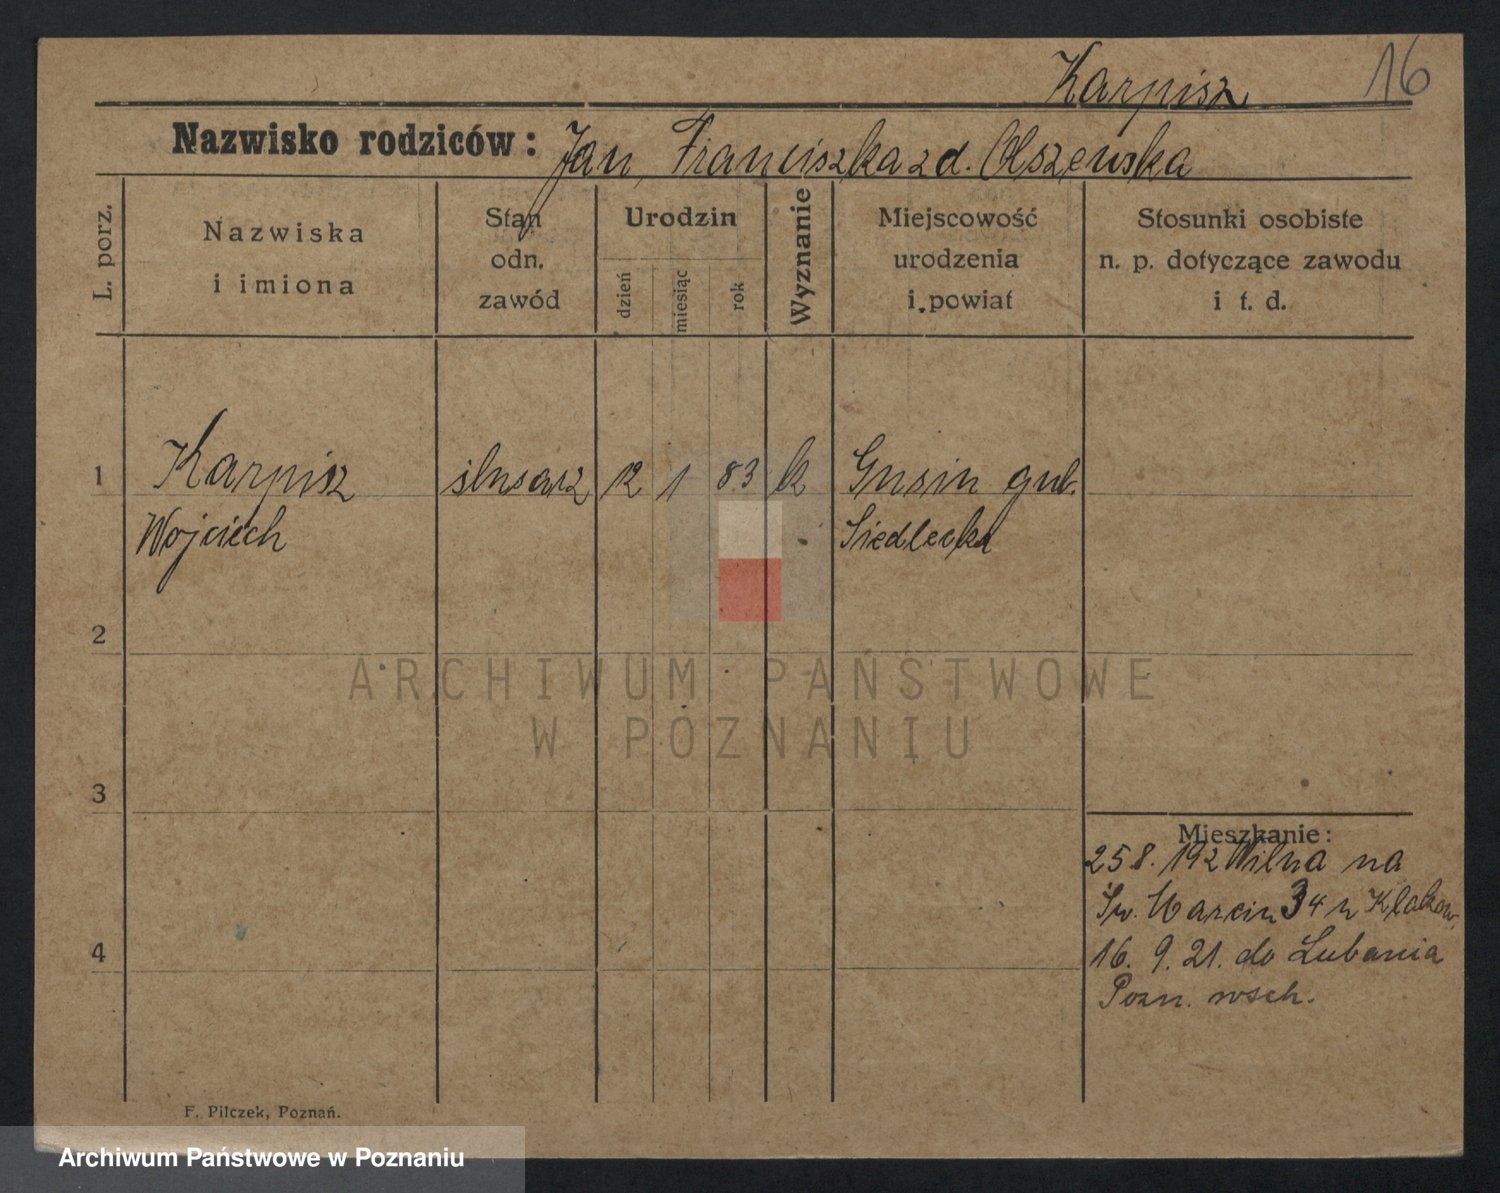 Karpisz 16
Nazwisko rodziców: Jan, Franciszka z d. Olszewska
L. porz.
Nazwiska
i imiona
Stan
odn.
zawód
Urodzin
dzień
miesiąc
rok
Wyznanie
Miejscowość
urodzenia
i powiat
Stosunki osobiste
n. p. dotyczące zawodu
i t. d.
1 Karpisz ślusarz 12 1 83 k Gusin gub.
Wojciech Siedlecka
2
3
4
Mieszkanie:
25 8. 192 Wilna na
Św. Marcin 34 u
16. 9. 21. do Lubania
Pozn. wsch.
F. Pilczek, Poznań.
ARCHIWUM PAŃSTWOWE
W POZNANIU
Archiwum Państwowe w Poznaniu